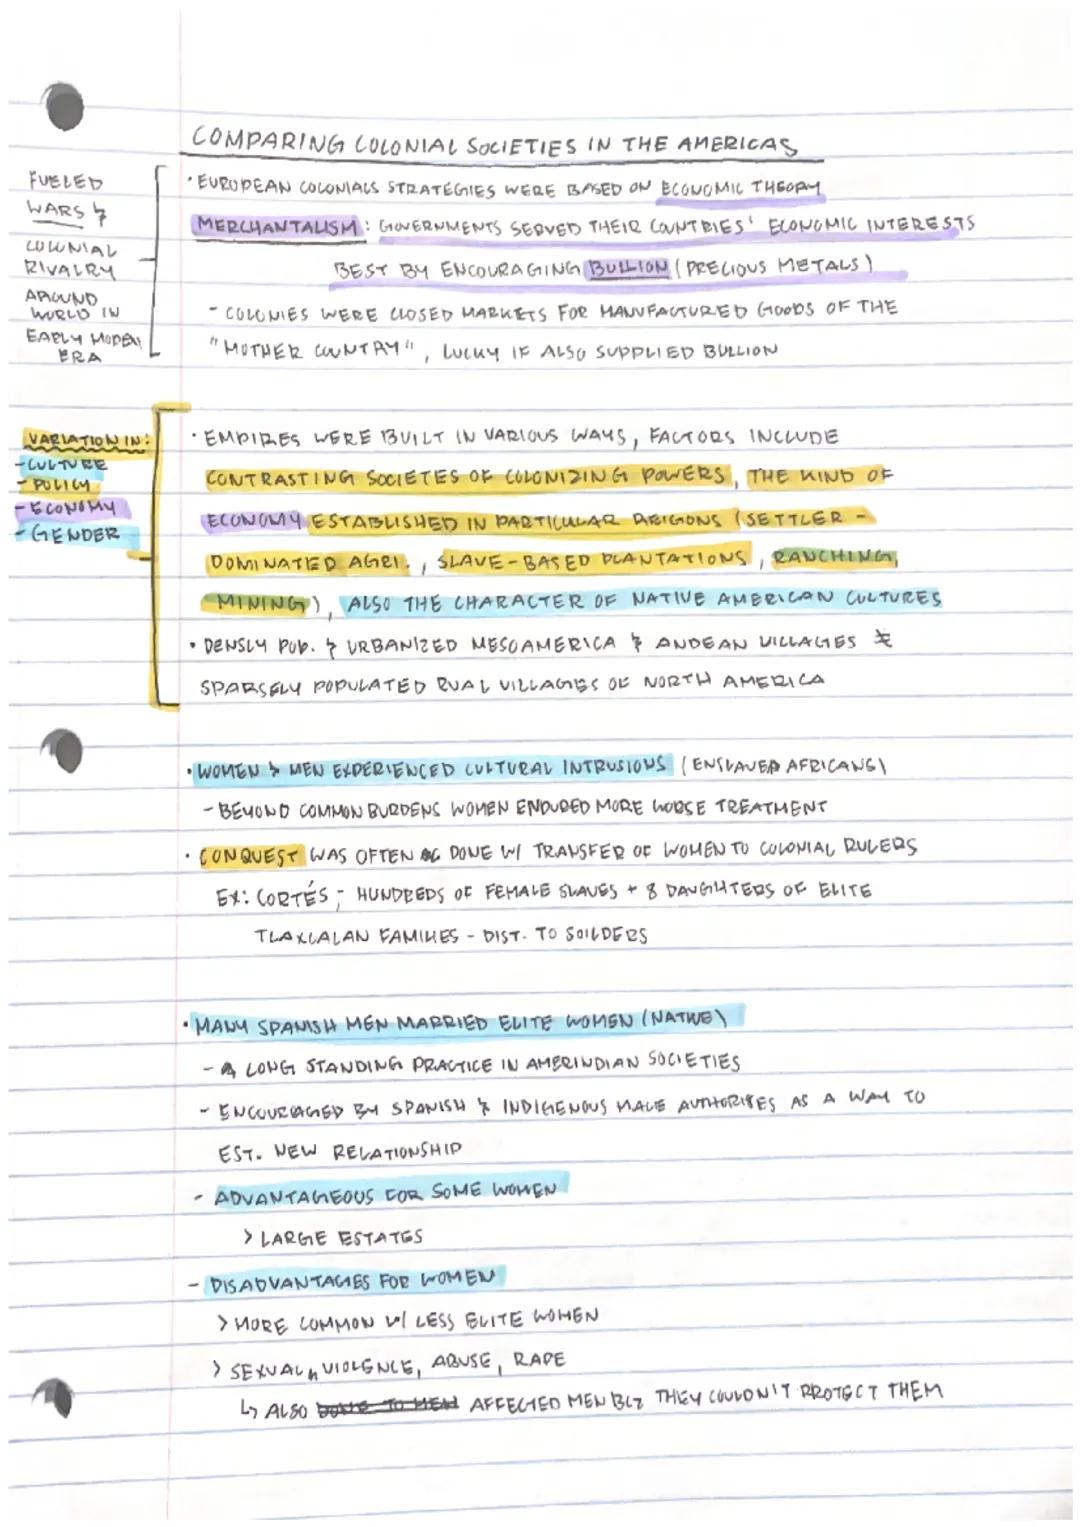 COMPARING COLONIAL SOCIETIES IN THE AMERICAS
FUELED
WARS &
COLONIAL
RIVALRY
AROUND
WORLD IN
EARLY MODERN
ERA
• EUROPEAN COLONIALS STRATEGIES WERE BASED ON ECONOMIC THEORY
MERCHANTALISM : GOVERNMENTS SERVED THEIR COUNTRIES' ECONOMIC INTERESTS
BEST BY ENCOURAGING BULLION (PRECIOUS METALS)
- COLONIES WERE CLOSED MARKETS FOR MANUFACTURED GOODS OF THE
"MOTHER COUNTRY", LUCKY IF ALSO SUPPLIED BULLION
VARIATION IN:
- CULTURE
- POLICY
- ECONOMY
- GENDER
• EMPIRES WERE BUILT IN VARIOUS WAYS, FACTORS INCLUDE
CONTRASTING SOCIETIES OF COLONIZING POWERS, THE KIND OF
ECONOMY ESTABLISHED IN PARTICULAR REIGONS (SETTLER -
DOMINATED AGRI., SLAVE-BASED PLANTATIONS, RANCHING,
MINING), ALSO THE CHARACTER OF NATIVE AMERICAN CULTURES
• DENSLY POP. & URBANIZED MESOAMERICA & ANDEAN VILLAGES ≠
SPARSELY POPULATED RUAL VILLAGES OF NORTH AMERICA
• WOMEN & MEN EXPERIENCED CULTURAL INTRUSIONS (ENSLAVED AFRICANS)
- BEYOND COMMON BURDENS WOMEN ENDURED MORE WORSE TREATMENT
• CONQUEST WAS OFTEN DONE W/ TRANSFER OF WOMEN TO COLONIAL RULERS
EX: CORTÉS - HUNDREDS OF FEMALE SLAVES + 8 DAUGHTERS OF ELITE
TLAXCALAN FAMILIES - DIST. TO SOILDERS
• MANY SPANISH MEN MARRIED ELITE WOMEN (NATIVE)
- A LONG STANDING PRACTICE IN AMERINDIAN SOCIETIES
- ENCOURAGED BY SPANISH & INDIGENOUS MALE AUTHORITIES AS A WAY TO
EST. NEW RELATIONSHIP
- ADVANTAGEOUS FOR SOME WOMEN
> LARGE ESTATES
- DISADVANTAGES FOR WOMEN
> MORE COMMON W/ LESS ELITE WOMEN
> SEXUAL VIOLENCE, ABUSE, RAPE
↳ ALSO DONE TO MEN AFFECTED MEN BCZ THEY COULDN'T PROTECT THEM